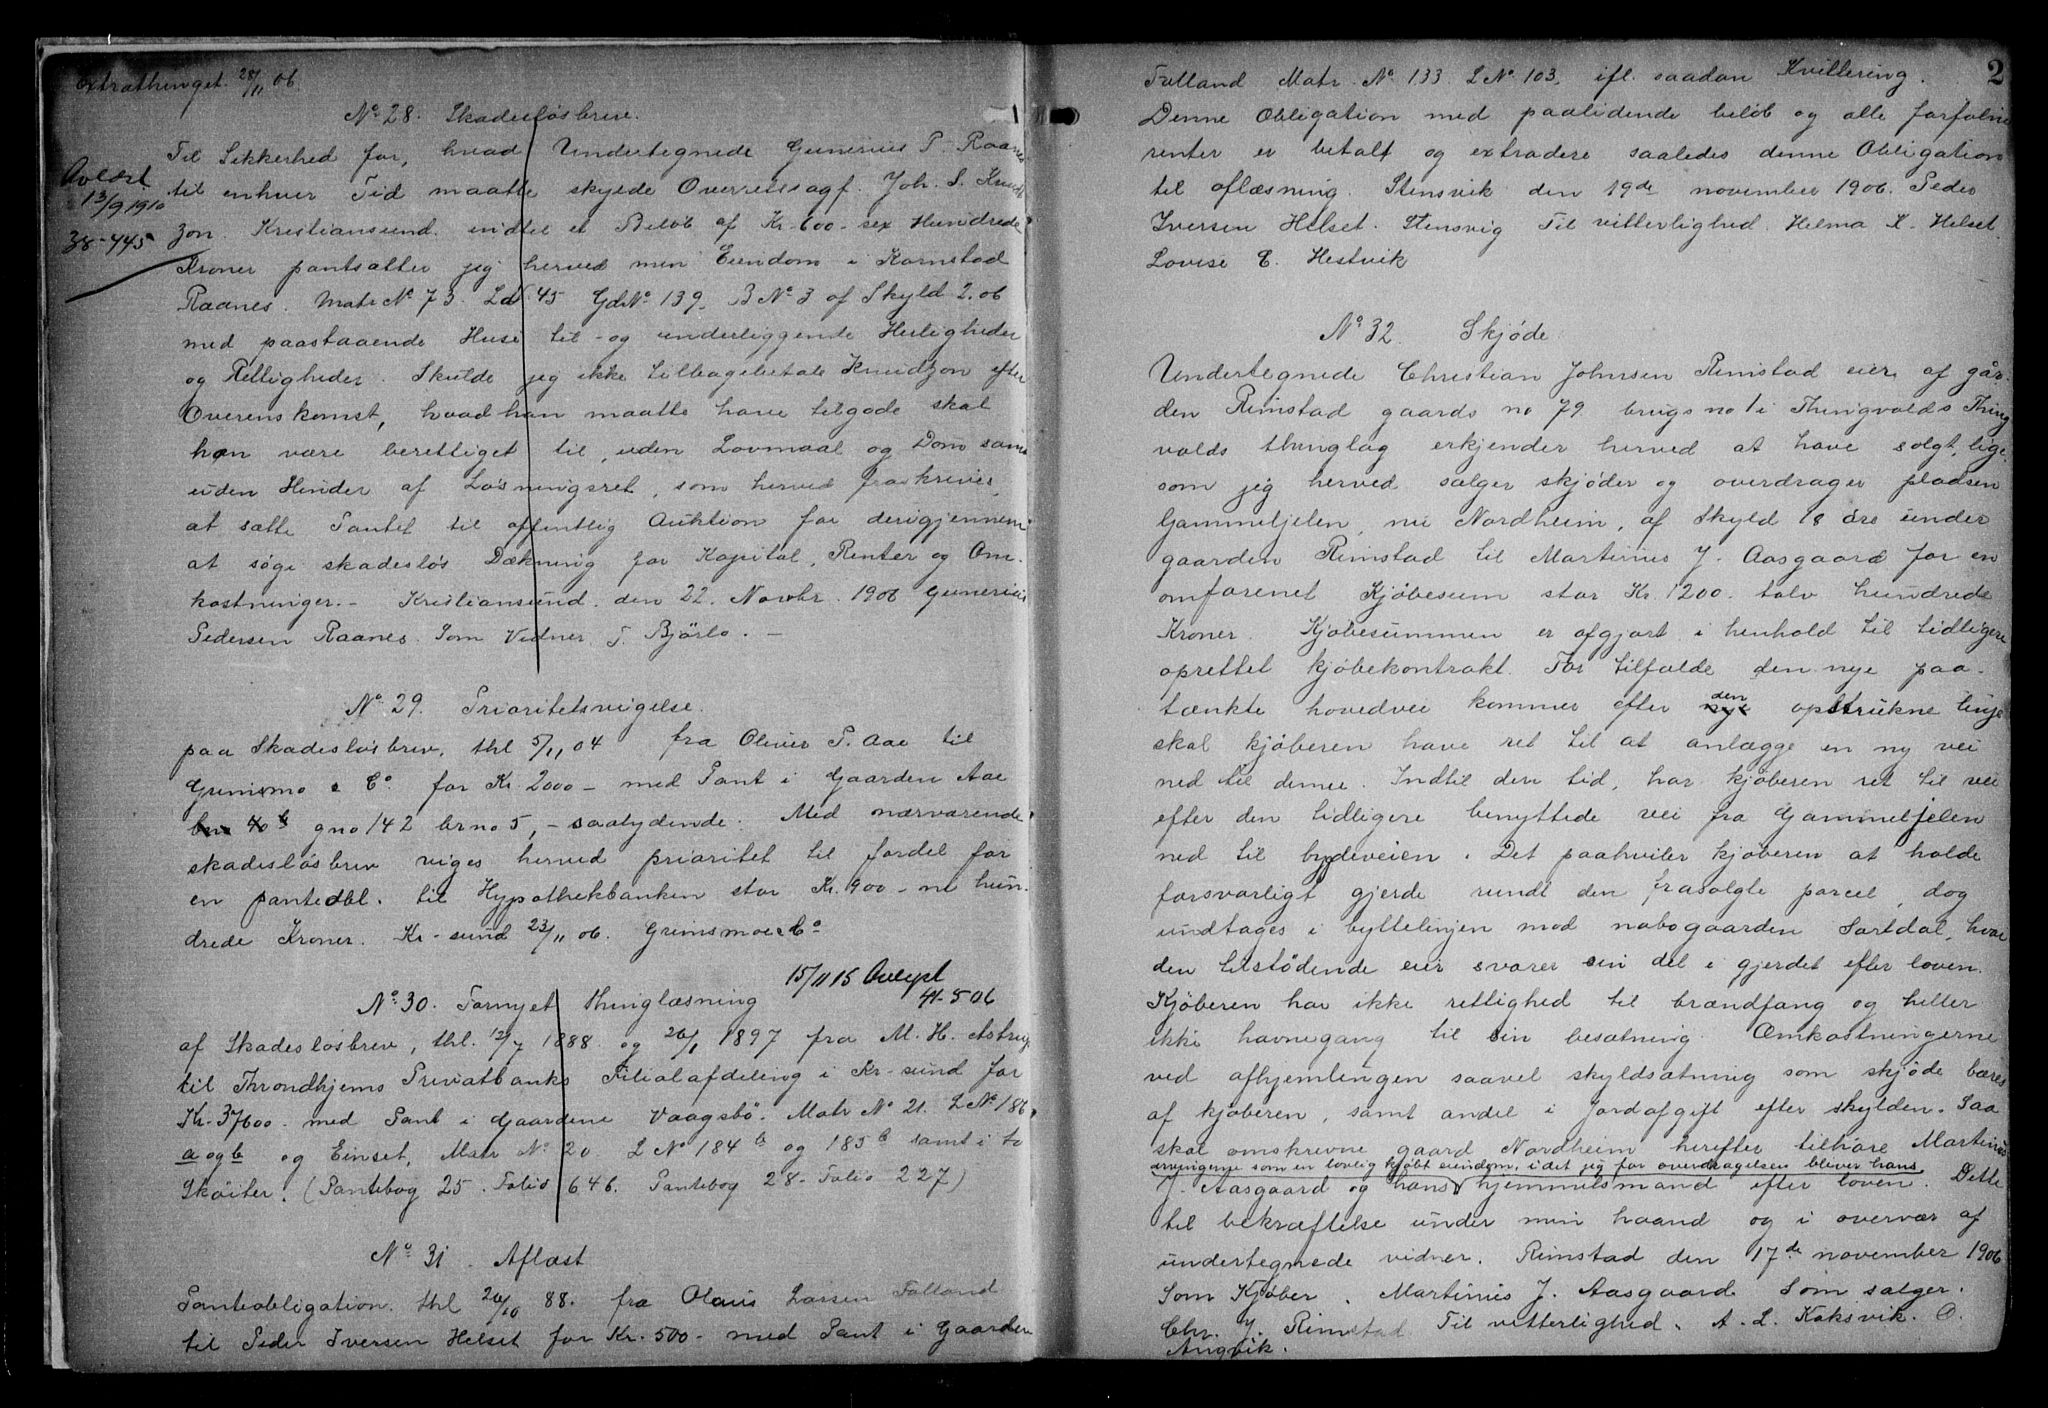 Extrathinget 28/11 06.
No 28. Skadesløsbrev.
Til Sikkerhed for, hvad Undertegnede Gunerius P. Raanes
til enhver Tid maatte skylde Overretssagf. Joh. S. Knudt
zon. Kristiansund. indtil et Beløb af Kr. 600 - sex Hundrede
Kroner pantsætter jeg herved min Eiendom i Kornstad
Raanes. Matr No 73. L No 45 GdNo 139. B No 3 af Skyld 2.06
med paastaaende Huse til - og underliggende Herligheder
og Rettigheder. Skulde jeg ikke tilbagebetale Knudtzon efter
Overenskomst, hvad han maatte have tilgode skal
han være berettiget til, uden Lovmaal og Dom samt
uden Hinder af Løsningsret, som herved fraskrives,
at sætte Pantet til offentlig Auktion for derigjennem
at søge skadesløs Dækning for Kapital, Renter og Om-
kostninger. - Kristiansund. den 22. Novbr. 1906 Gunerius
Pedersen Raanes. Som Vidner T. Bjørlo. -
Avlæst
13/9 1910
38-445
No 29. Prioritetsvigelse.
paa Skadesløsbrev, thl 5/11 04 fra Oliver P. Aae til
Grimsmo & Co. for Kr. 2000 - med Pant i Gaarden Aae
gno 142 brno 5, - saalydende: Med nærværende
skadesløsbrev viges herved prioritet til fordel for
en panteobl. til Hypothekbanken stor Kr. 900 - ni hun-
drede Kroner. Kr-sund 23/11 06. Grimsmo & Co
15/11 15 Avlyst
41-506
No 30. Fornyet Thinglæsning
af Skadesløsbrev, thl. 12/7 1888 og 26/1 1897 fra M. H. Astrup
til Throndhjems Privatbanks Filialafdeling i Kr-sund for
Kr. 37600 - med Pant i Gaardene Vaagsbø. Matr No 21. L No 186
a og b og Einset, Matr No 20 L No 184 b og 185 b samt i to
Skøiter. (Pantebog 25. Folio 646. Pantebog 28 - Folio 227)
No 31. Aflæst
Panteobligation. thl 26/10 88. fra Olaus Larsen Falland
til Peder Iversen Helset for Kr. 500 - med Pant i Gaarden
2
Falland Matr. No 133 L No 103, ifl. saadan Kvittering.
Denne Obligation med paalidende beløb og alle forfalne
renter er betalt og extradere saaledes denne Obligation
til aflæsning. Stensvik den 19de november 1906. Peder
Iversen Helset. Stensvig Til vitterlighed. Helma K. Helset.
Lovise E. Hestvik
No 32. Skjøde.
Undertegnede Christian Johnsen Rimstad eier af går-
den Rimstad gaards no 79 brugs no 1 i Thingvolds Thing
volds thinglag erkjender herved at have solgt, lige
som jeg herved sælger skjøder og overdrager pladsen
Gammeljelen, nu Nordheim, af Skyld 18 øre under
gaarden Rimstad til Martinius J. Aasgaard for en
omforenet Kjøbesum stor Kr. 1200. tolv hundrede
Kroner. Kjøbesummen er afgjort i henhold til tidligere
oprettet kjøbekontrakt. For tilfælde den nye paa-
tænkte hovedvei kommer efter den opstukne linje
skal kjøberen have ret til at anlægge en ny vei
ned til denne. Indtil den tid, har kjøberen ret til vei
efter den tidligere benyttede vei fra Gammeljelen
ned til bygdeveien. Det paahviler kjøberen at holde
forsvarligt gjerde rundt den frasolgte parcel, dog
undtages i byttelinjen mod nabogaarden Sørtdal, hvor
den tilstødende eier svarer sin del i gjerdet efter loven.
Kjøberen har ikke rettighed til brændfang og heller
ikke havnegang til sin besætning. Omkostningerne
ved afhjemlingen saavel skyldsætning som skjøde bæres
af kjøberen, samt andel i Jordafgift efter skylden. Saa
skal omskrevne gaard Nordheim herefter tilhøre Martinius
arvingerne som en lovlig kjøbt eiendom, idet jeg for overdragelsen bliver hans
J. Aasgaard og hans hjemmelsmand efter loven. Dette
til bekræftelse under min haand og i overvær af
undertegnede vidner. Rimstad den 17de november 1906
Som Kjøber. Martinius J. Aasgaard. Som sælger.
Chr. J. Rimstad Til vitterlighed. A. L. Koksvik. O.
Angvik.